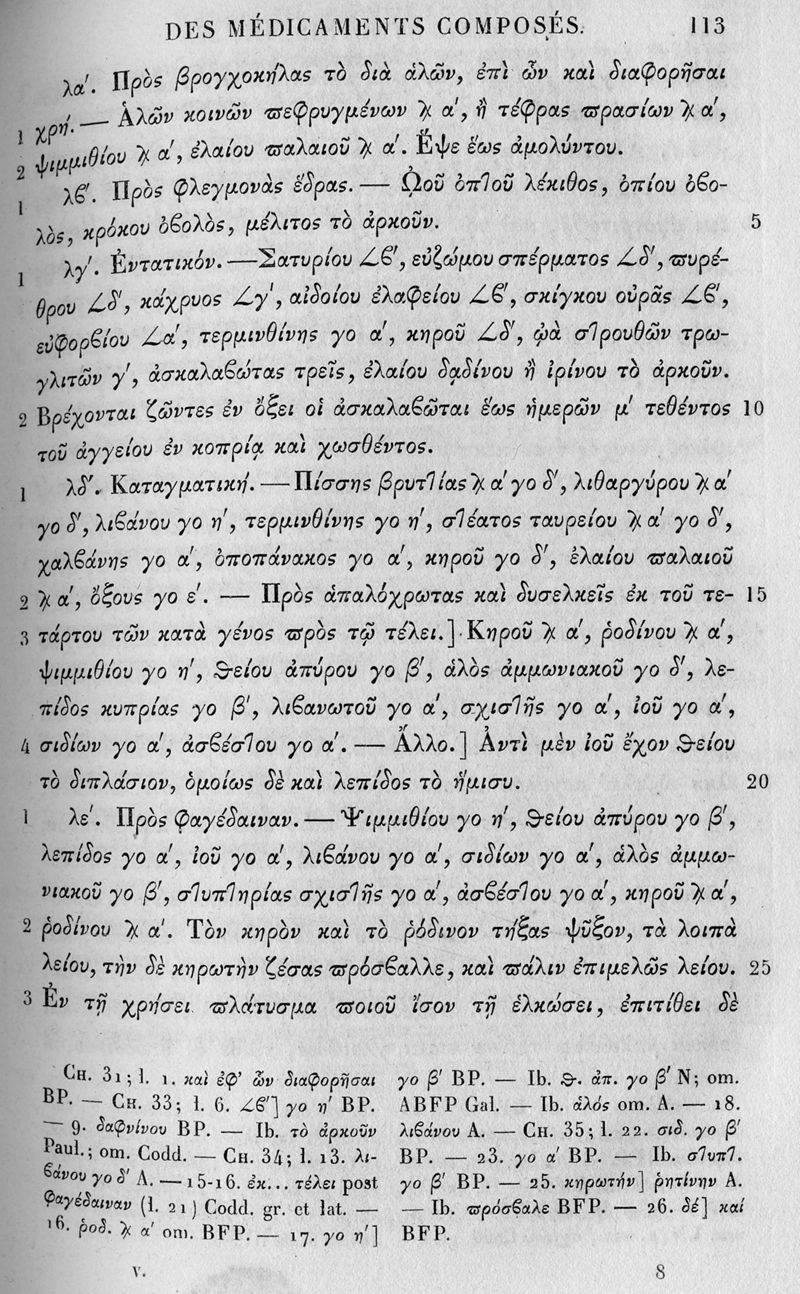 DES MÉDICAMENTS COMPOSÉS. 113
λα′. Πρὸς βρογχοκήλας τὸ διὰ ἁλῶν, ἐπὶ ὧν καὶ διαφορῆσαι
1 χρή. — Ἁλῶν κοινῶν πεφρυγμένων ℔ α′, ἢ τέφρας πρασίων ℔ α′,
2 ψιμμιθίου ℔ α′, ἐλαίου παλαιοῦ ℔ α′. Ἕψε ἕως ἀμολύντου.
1 λβ′. Πρὸς φλεγμονὰς ἕδρας. — Ὠοῦ ὀπτοῦ λέκιθος, ὀπίου ὀβο-
λὸς, κρόκου ὀβολὸς, μέλιτος τὸ ἀρκοῦν. 5
1 λγ′. Ἐντατικόν. — Σατυρίου ∠β′, εὐζώμου σπέρματος ∠δ′, πυρέ-
θρου ∠δ′, κάχρυος ∠γ′, αἰδοίου ἐλαφείου ∠β′, σκίγκου οὐρᾶς ∠β′,
εὐφορβίου ∠α′, τερμινθίνης γο α′, κηροῦ ∠δ′, ᾠὰ στρουθῶν τρω-
γλιτῶν γ′, ἀσκαλαβώτας τρεῖς, ἐλαίου δᾳδίνου ἢ ἰρίνου τὸ ἀρκοῦν.
2 Βρέχονται ζῶντες ἐν ὄξει οἱ ἀσκαλαβῶται ἕως ἡμερῶν μ′ τεθέντος 10
τοῦ ἀγγείου ἐν κοπρίᾳ καὶ χωσθέντος.
1 λδ′. Καταγματική. — Πίσσης βρυττίας ℔ α′ γο δ′, λιθαργύρου ℔ α′
γο δ′, λιβάνου γο η′, τερμινθίνης γο η′, στέατος ταυρείου ℔ α′ γο δ′,
χαλβάνης γο α′, ὀποπάνακος γο α′, κηροῦ γο δ′, ἐλαίου παλαιοῦ
2 ℔ α′, ὄξους γο ε′. — Πρὸς ἁπαλόχρωτας καὶ δυσελκεῖς ἐκ τοῦ τε- 15
3 τάρτου τῶν κατὰ γένος πρὸς τῷ τέλει.] Κηροῦ ℔ α′, ῥοδίνου ℔ α′,
ψιμμιθίου γο η′, θείου ἀπύρου γο β′, ἁλὸς ἀμμωνιακοῦ γο δ′, λε-
πίδος κυπρίας γο β′, λιβανωτοῦ γο α′, σχιστῆς γο α′, ἰοῦ γο α′,
4 σιδίων γο α′, ἀσβέστου γο α′. — Ἄλλο.] Ἀντὶ μὲν ἰοῦ ἔχον θείου
τὸ διπλάσιον, ὁμοίως δὲ καὶ λεπίδος τὸ ἥμισυ. 20
1 λε′. Πρὸς φαγέδαιναν. — Ψιμμιθίου γο η′, θείου ἀπύρου γο β′,
λεπίδος γο α′, ἰοῦ γο α′, λιβάνου γο α′, σιδίων γο α′, ἁλὸς ἀμμω-
νιακοῦ γο β′, στυπτηρίας σχιστῆς γο α′, ἀσβέστου γο α′, κηροῦ ℔ α′,
2 ῥοδίνου ℔ α′. Τὸν κηρὸν καὶ τὸ ῥόδινον τήξας ψῦξον, τὰ λοιπὰ
λείου, τὴν δὲ κηρωτὴν ζέσας πρόσβαλλε, καὶ πάλιν ἐπιμελῶς λείου. 25
3 Ἐν τῇ χρήσει πλάτυσμα ποιοῦ ἴσον τῇ ἑλκώσει, ἐπιτίθει δὲ
CH. 31; l. 1. καὶ ἐφ’ ὧν διαφορῆσαι
BP. — CH. 33; l. 6. ∠β′] γο η′ BP.
— 9. δαφνίνου BP. — Ib. τὸ ἀρκοῦν
Paul.; om. Codd. — CH. 34; l. 13. λι-
βάνου γο δ′ A. — 15-16. ἐκ... τέλει post
φαγέδαιναν (l. 21) Codd. gr. et lat. —
16. ῥοδ. ℔ α′ om. BFP. — 17. γο η′]
γο β′ BP. — Ib. θ. ἀπ. γο β′ N; om.
ABFP Gal. — Ib. ἁλός om. A. — 18.
λιβάνου A. — CH. 35; l. 22. σιδ. γο β′
BP. — 23. γο α′ BP. — Ib. στυπτ.
γο β′ BP. — 25. κηρωτήν] ῥητίνην A.
— Ib. πρόσβαλε BFP. — 26. δέ] καί
BFP.
v. 8